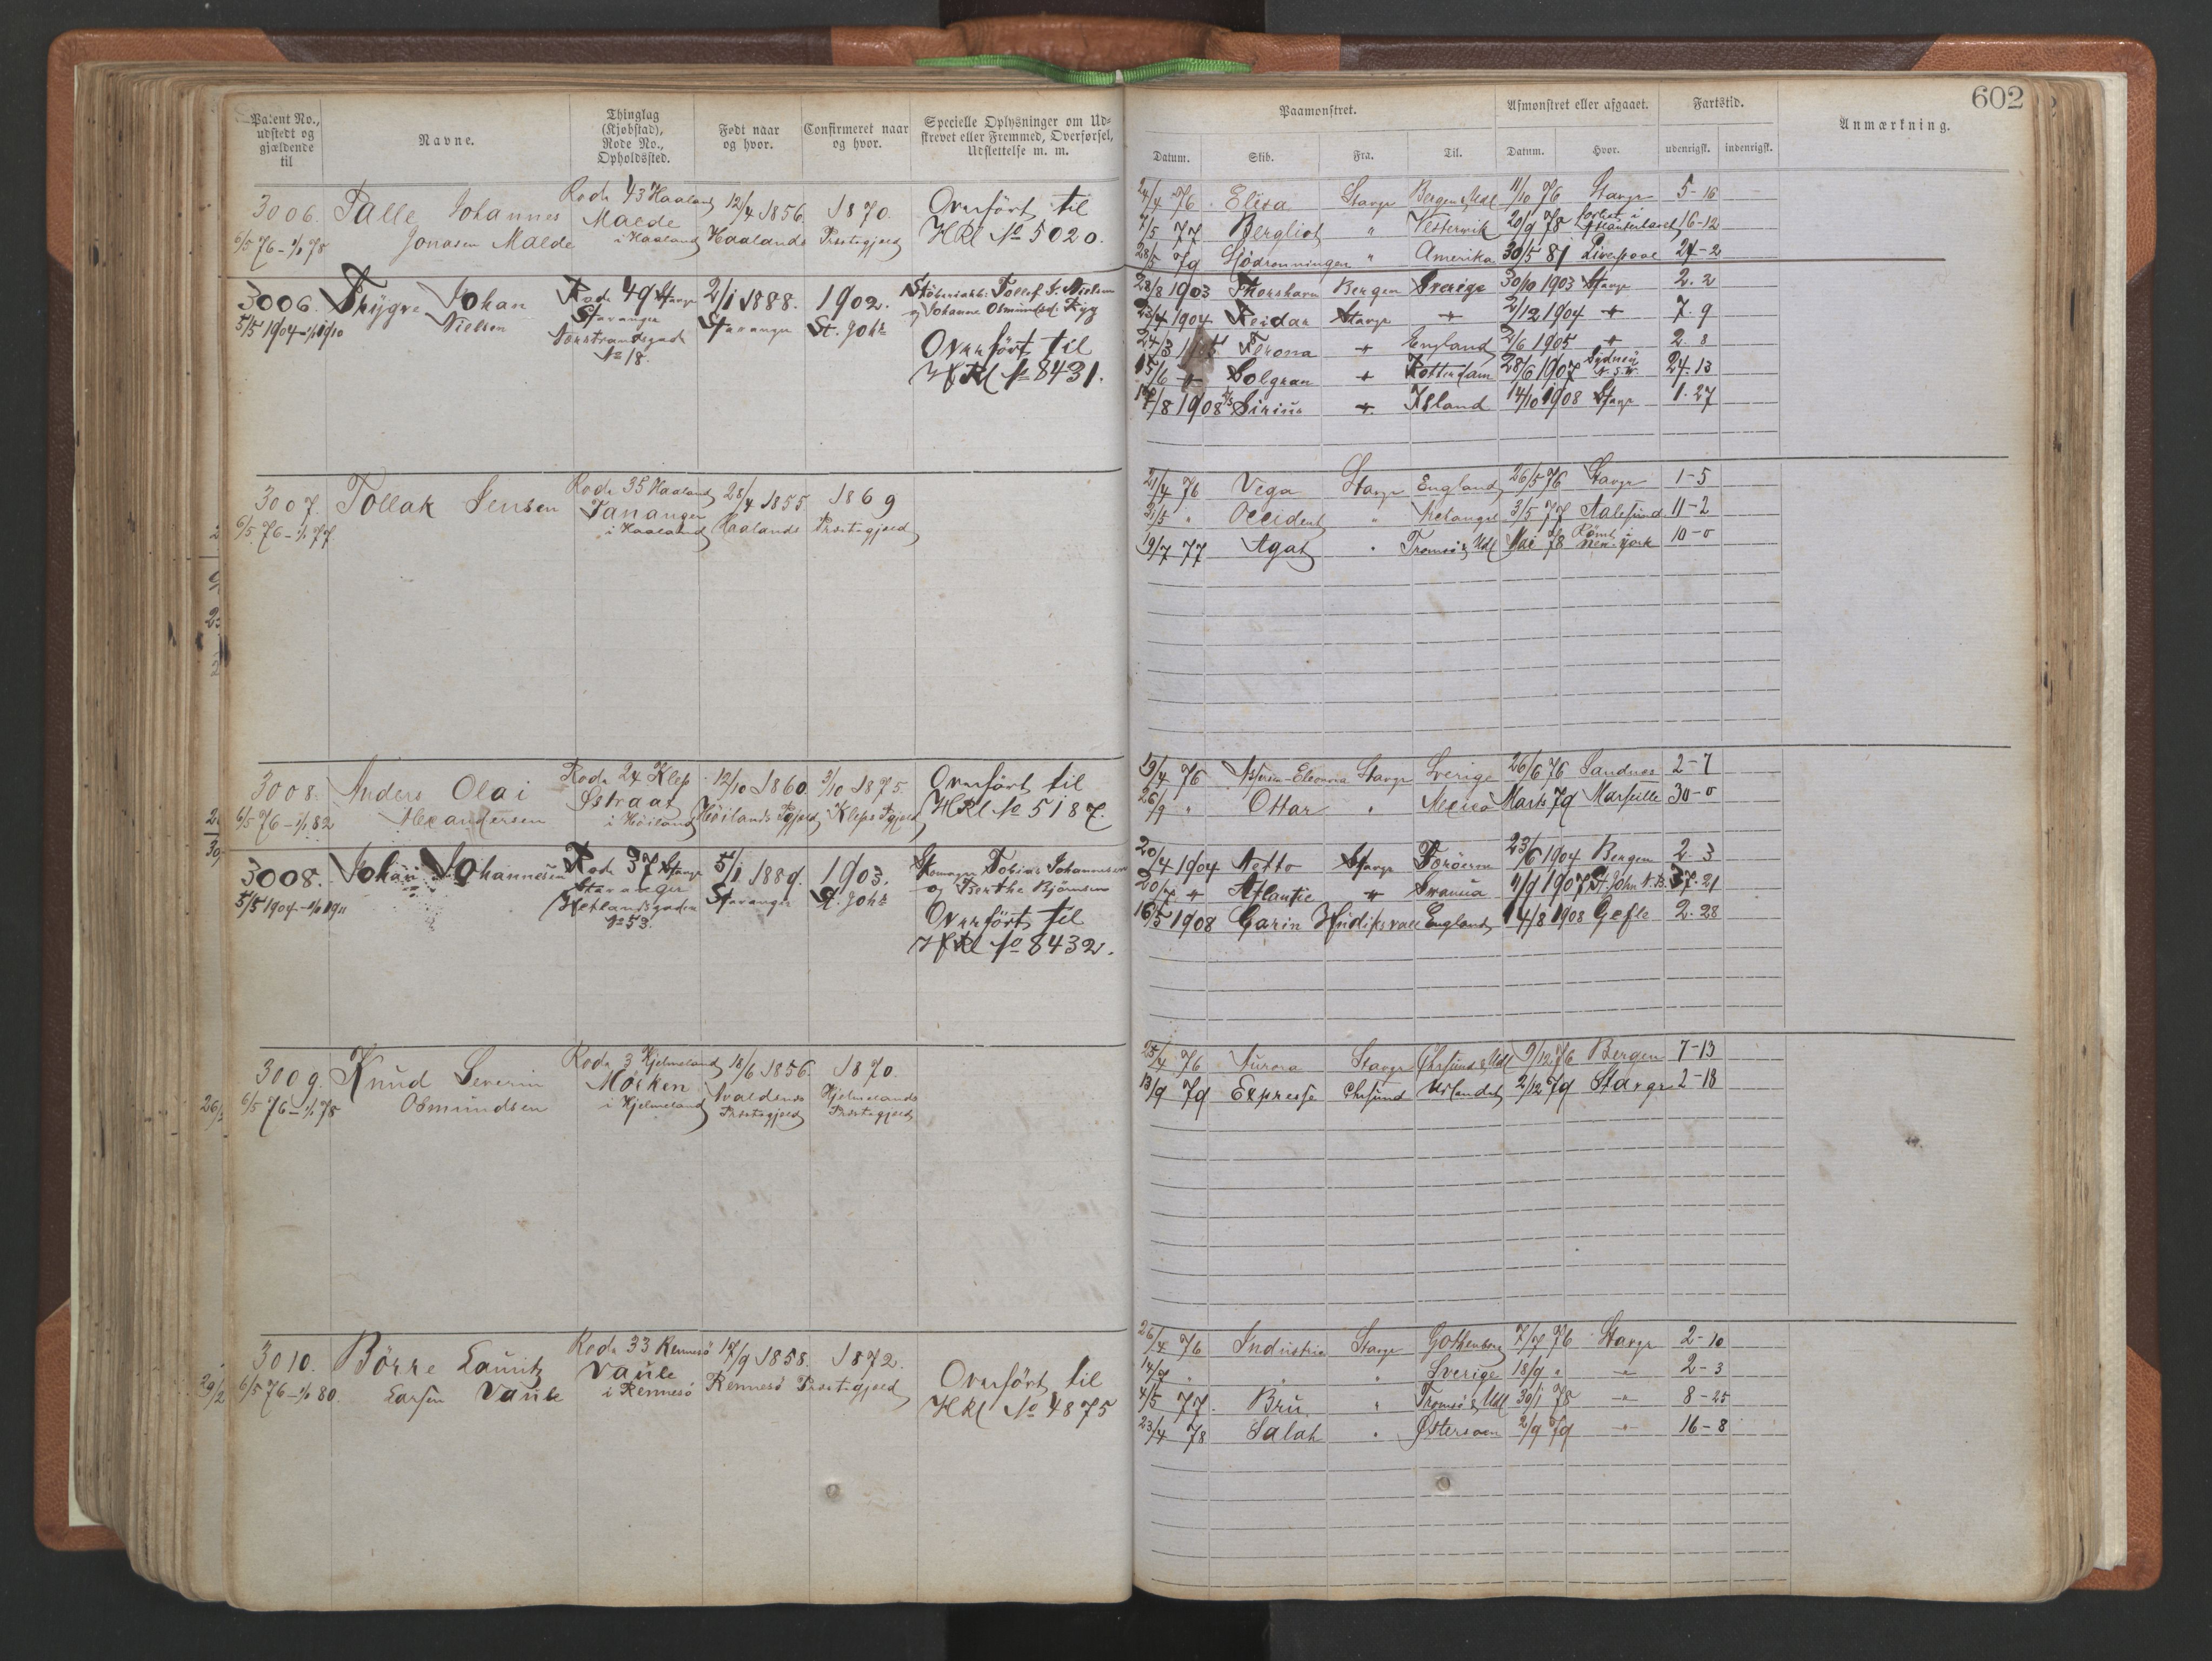 602
Patent No., udstedt og gjældende til
Navne.
Thinglag (Kjøbstad), Rode No., Opholdssted.
Født naar og hvor.
Confirmeret naar og hvor.
Specielle Oplysninger om Udskrevet eller Fremmed, Overførsel, Udslettelse m. m.
Paamønstret.
Datum.
Skib.
Fra.
Til.
Afmønstret eller afgaaet.
Datum.
Hvor.
Fartstid.
udenrigsk.
indenrigsk.
Anmærkning.
3006. Salle Johannes Rode 43 Haaland 12/4 1856. 1870. Overført til
6/5 76 - 1/1 78 Jonasen Malde Malde i Haaland Haalands Præstegjeld HRl No 5020.
24/4 76 Elisa Stavgr Bergen & Udl 11/10 76 Stavgr 5-16
7/5 77 Bergliot " Vestervik 20/9 78 forlist i Atlanterhavet 16-12
28/5 79 Sjødronningen " Amerika 30/5 81 Liverpool 24-2
3006. Trygve Johan Rode 49 Stavgr 2/1 1888. 1902.
5/5 1904 - 1/1 1910 Nielsen Stavanger Stavanger St. Johs
Nørrestrandsgade No 18.
og Johanne Osmundsd. Rygg
Overført til
HRl No 8431.
28/8 1903 Thorshavn Bergen Sverige 30/10 1903 Stavgr 2. 2
23/4 1904 Reidar Stavgr 2/12 1904 7. 9
24/3 1905 Verona England 2/6 1905 2. 8
15/6 Solgran Rotterdam 28/6 1907 Sydney N.S.W. 24. 13
17/8 1908 Sirius Island 14/10 1908 Stavgr 1. 27
3007. Tollak Jensen Rode 35 Haaland 28/4 1855. 1869
6/5 76 - 1/1 77 Tananger i Haaland Haalands Præstegjeld
21/4 76 Vega Stavgr England 26/5 76 Stavgr 1-5
31/5 " Occident " Archangel 3/5 77 Aalesund 11-2
19/7 77 Agat " Tromsø & Udl Mai 78 Rømt New York 10-0
3008. Anders Olai Rode 24 Klep 12/10 1860. 3/10 1875. Overført til
6/5 76 - 1/1 82 Alexandersen Østraat i Høiland Høilands Pgjeld Kleps Pgjeld HRl No 5187.
19/4 76 Eleonora Stavgr Sverige 26/6 76 Sandnes 2-7
26/9 " Ottar " Mexico Marts 79 Marseille 30-0
3008. Johan Johannesen Rode 37 Stavgr 5/1 1889. 1903. Tobias Johannesen
5/5 1904 - 1/1 1911 Stavanger Stavanger St. Johs og Berthe Bjørnsen
Hetlandsgaden No 53.
Overført til
HRl No 8432.
20/4 1904 Netto Stavgr Færøerne 23/6 1904 Bergen 2. 3
20/7 Atlantic Svansea 11/9 1907 St. John N.B. 37. 21
16/5 1908 Carin Hudiksvall England 14/8 1908 Gefle 2. 28
3009. Knud Severin Rode 3 Hjelmeland 18/6 1856. 1870.
6/5 76 - 1/1 78 Osmundsen Mösken i Hjelmeland Avaldsnæs Præstegjeld Hjelmelands Præstegjeld
25/4 76 Aurora Stavgr Chrsund & Udl 9/12 76 Bergen 7-13
13/9 79 Expresse Chrsund Udlandet 2/12 79 Stavgr 2-18
3010. Börre Lauritz Rode 33 Rennesö 17/9 1858. 1872. Overført til
6/5 76 - 1/1 80. Larsen Vaule Vaule i Rennesö Rennesö Præstegjeld HRl No 4875
26/4 76 Industrie Stavgr Gothenborg 7/7 76 Stavgr 2-10
14/7 " " " Sverige 18/9 " " 2-3
4/5 77. Bru " Tromsö & Udl 30/1 78 " 8-25
23/4 78 Salah " Østersöen 2/9 79 " 16-8